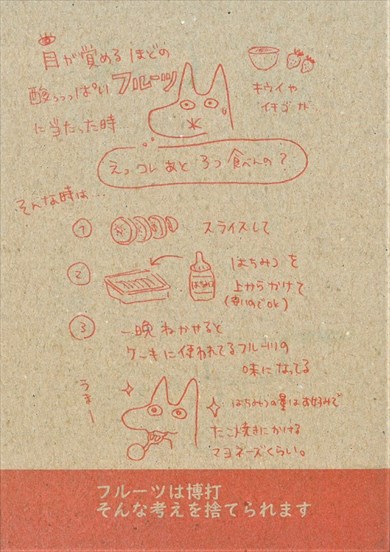 目が覚めるほどの
酸っっっぱいフルーツ
に当たった時…
キウイや
イチゴが
えっコレあと3つ食べんの？
そんな時は…
① スライスして
② はちみつを
はちみつ
上からかけて
(安いのでOK)
③ 一晩ねかせると
ケーキに使われてるフルーツの
味になってる
うまー
はちみつの量はお好みで
たこ焼きにかける
マヨネーズくらい。
フルーツは博打
そんな考えを捨てられます